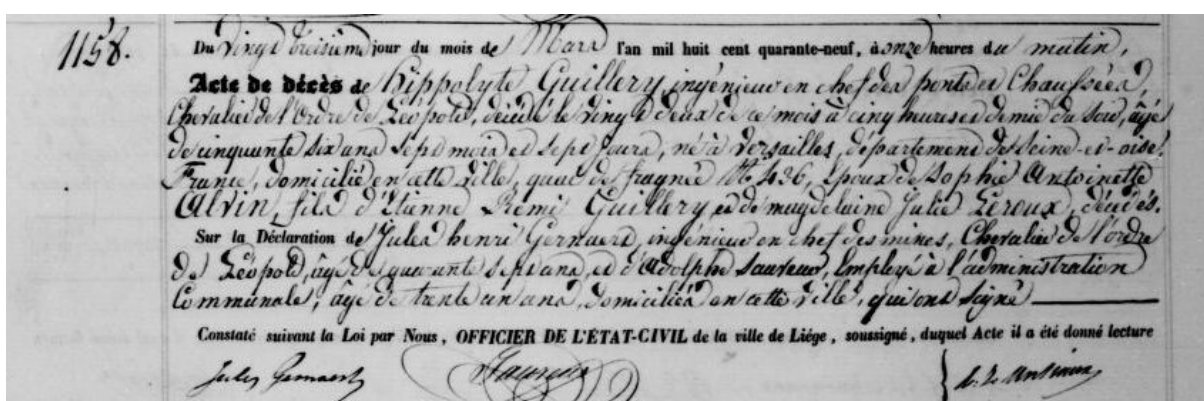 1158.
Du Vingt troisième jour du mois de Mars l'an mil huit cent quarante-neuf, à onze heures du matin,
Acte de décès de Hippolyte Guillery, ingénieur en chef des ponts et Chaussées,
Chevalier de l'Ordre de Léopold, décédé le vingt deux de ce mois à cinq heures et demie du soir, âgé
de cinquante six ans sept mois et sept jours, né à Versailles, département de Seine-et-oise,
France, domicilié en cette ville, quai de fragnée No 436, Epoux de Sophie Antoinette
Alvin, fils d'Etienne Rémi Guillery et de magdelaine Julie Leroux, décédés.
Sur la Déclaration de Jules henri Gernaert, ingénieur en chef des mines, Chevalier de l'ordre
de Léopold, âgé de quarante sept ans, et d'Adolphe Sauveur, Employé à l'administration
Communale, âgé de trente un ans, domiciliés en cette ville, qui ont signé
Constaté suivant la Loi par Nous, OFFICIER DE L'ÉTAT-CIVIL de la ville de Liége, soussigné, duquel Acte il a été donné lecture
Jules Gernaert Sauveur